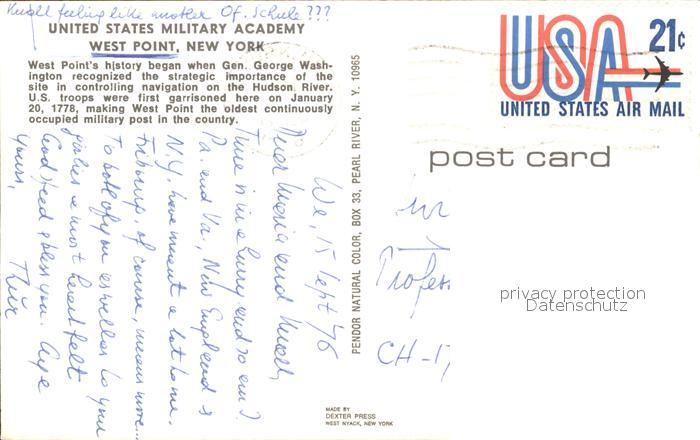 feeling like another Of. Schule???
UNITED STATES MILITARY ACADEMY
WEST POINT, NEW YORK
West Point's history began when Gen. George Wash-
ington recognized the strategic importance of the
site in controlling navigation on the Hudson River.
U.S. troops were first garrisoned here on January
20, 1778, making West Point the oldest continuously
occupied military post in the country.
We, 15 Sept '76
Dear Maria and
Time is in a hurry and so am I
Pa. and Va., New England &
N.Y. have meant a lot to me.
Fribourg, of course, means more...
To both of you as well as to your
a most heartfelt
Godspeed & bless you.
Yours,
PENDOR NATURAL COLOR, BOX 33, PEARL RIVER, N. Y. 10965
MADE BY
DEXTER PRESS
WEST NYACK, NEW YORK
USA 21¢
UNITED STATES AIR MAIL
post card
Profes
CH-17
privacy protection
Datenschutz